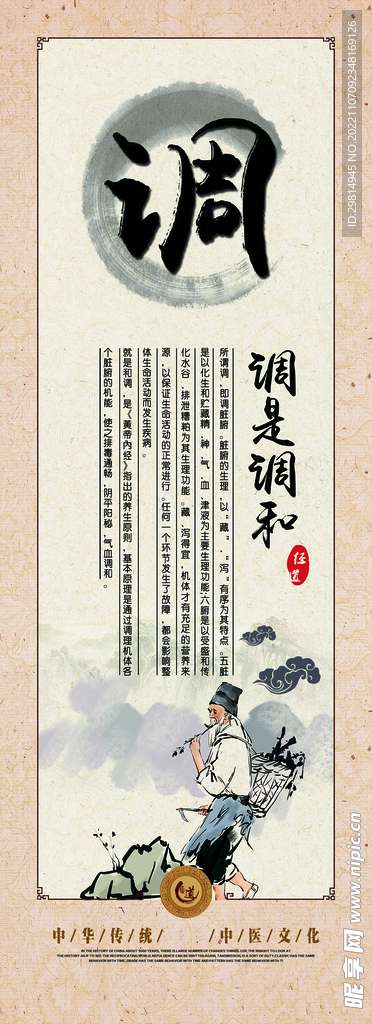 调
调是调和
经道
所谓调，即调脏腑。脏腑的生理，以“藏”、“泻”有序为其特点。五脏
是以化生和贮藏精、神、气、血、津液为主要生理功能；六腑是以受盛和传
化水谷、排泄糟粕为其生理功能。藏、泻得宜，机体才有充足的营养来
源，以保证生命活动的正常进行。任何一个环节发生了故障，都会影响整
体生命活动而发生疾病。
就是和调，是《黄帝内经》指出的养生原则，基本原理是通过调理机体各
个脏腑的机能，使之排毒通畅，阴平阳秘，气血调和。
道
中/华/传/统/ /中/医/文/化
IN THE HISTORY OF CHINA ABOUT 5000 YEARS, THERE IS LARGE NUMBER OF CHANGES THINGS. USE THE INSIGHT TO LOOK AT
THE HISTORY AS IF TO SEE THE RECIPROCATING WORLD,
BEHAVIOR WITH TIME, GRASS HAS THE SAME BEHAVIOR WITH TIME AND PATTERN HAS THE SAME BEHAVIOR WITH TI
ID:29814945 NO:20221107092348169126
昵享网 www.nipic.cn